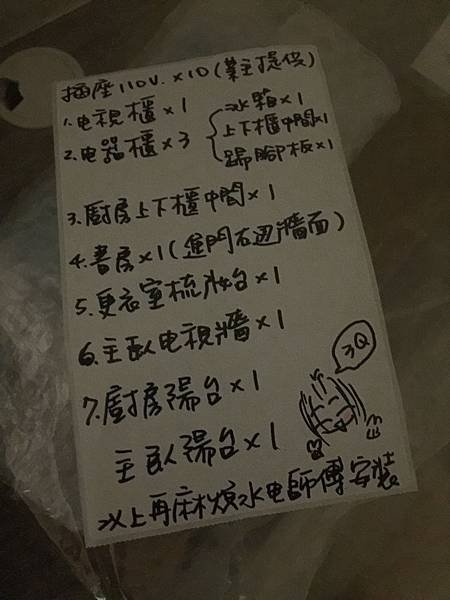 插座110V. ×10(業主提供)
1.电視櫃×1
2.电器櫃×3
冰箱×1
上下櫃中間×1
踢腳板×1
3.廚房上下櫃中間×1
4.書房×1(進門右边牆面)
5.更衣室梳妝台×1
6.主臥电視牆×1
7.廚房陽台×1
主臥陽台×1
3Q
以上再麻煩水电師傅安裝